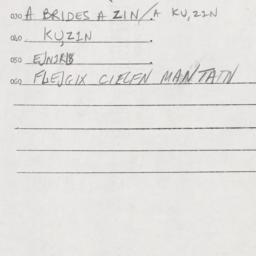 030 A BRIDES A ZIN/. A KU,ZIN
040 KU,ZIN .
050 .
060 FLEJGIX CIELEN MANTATN